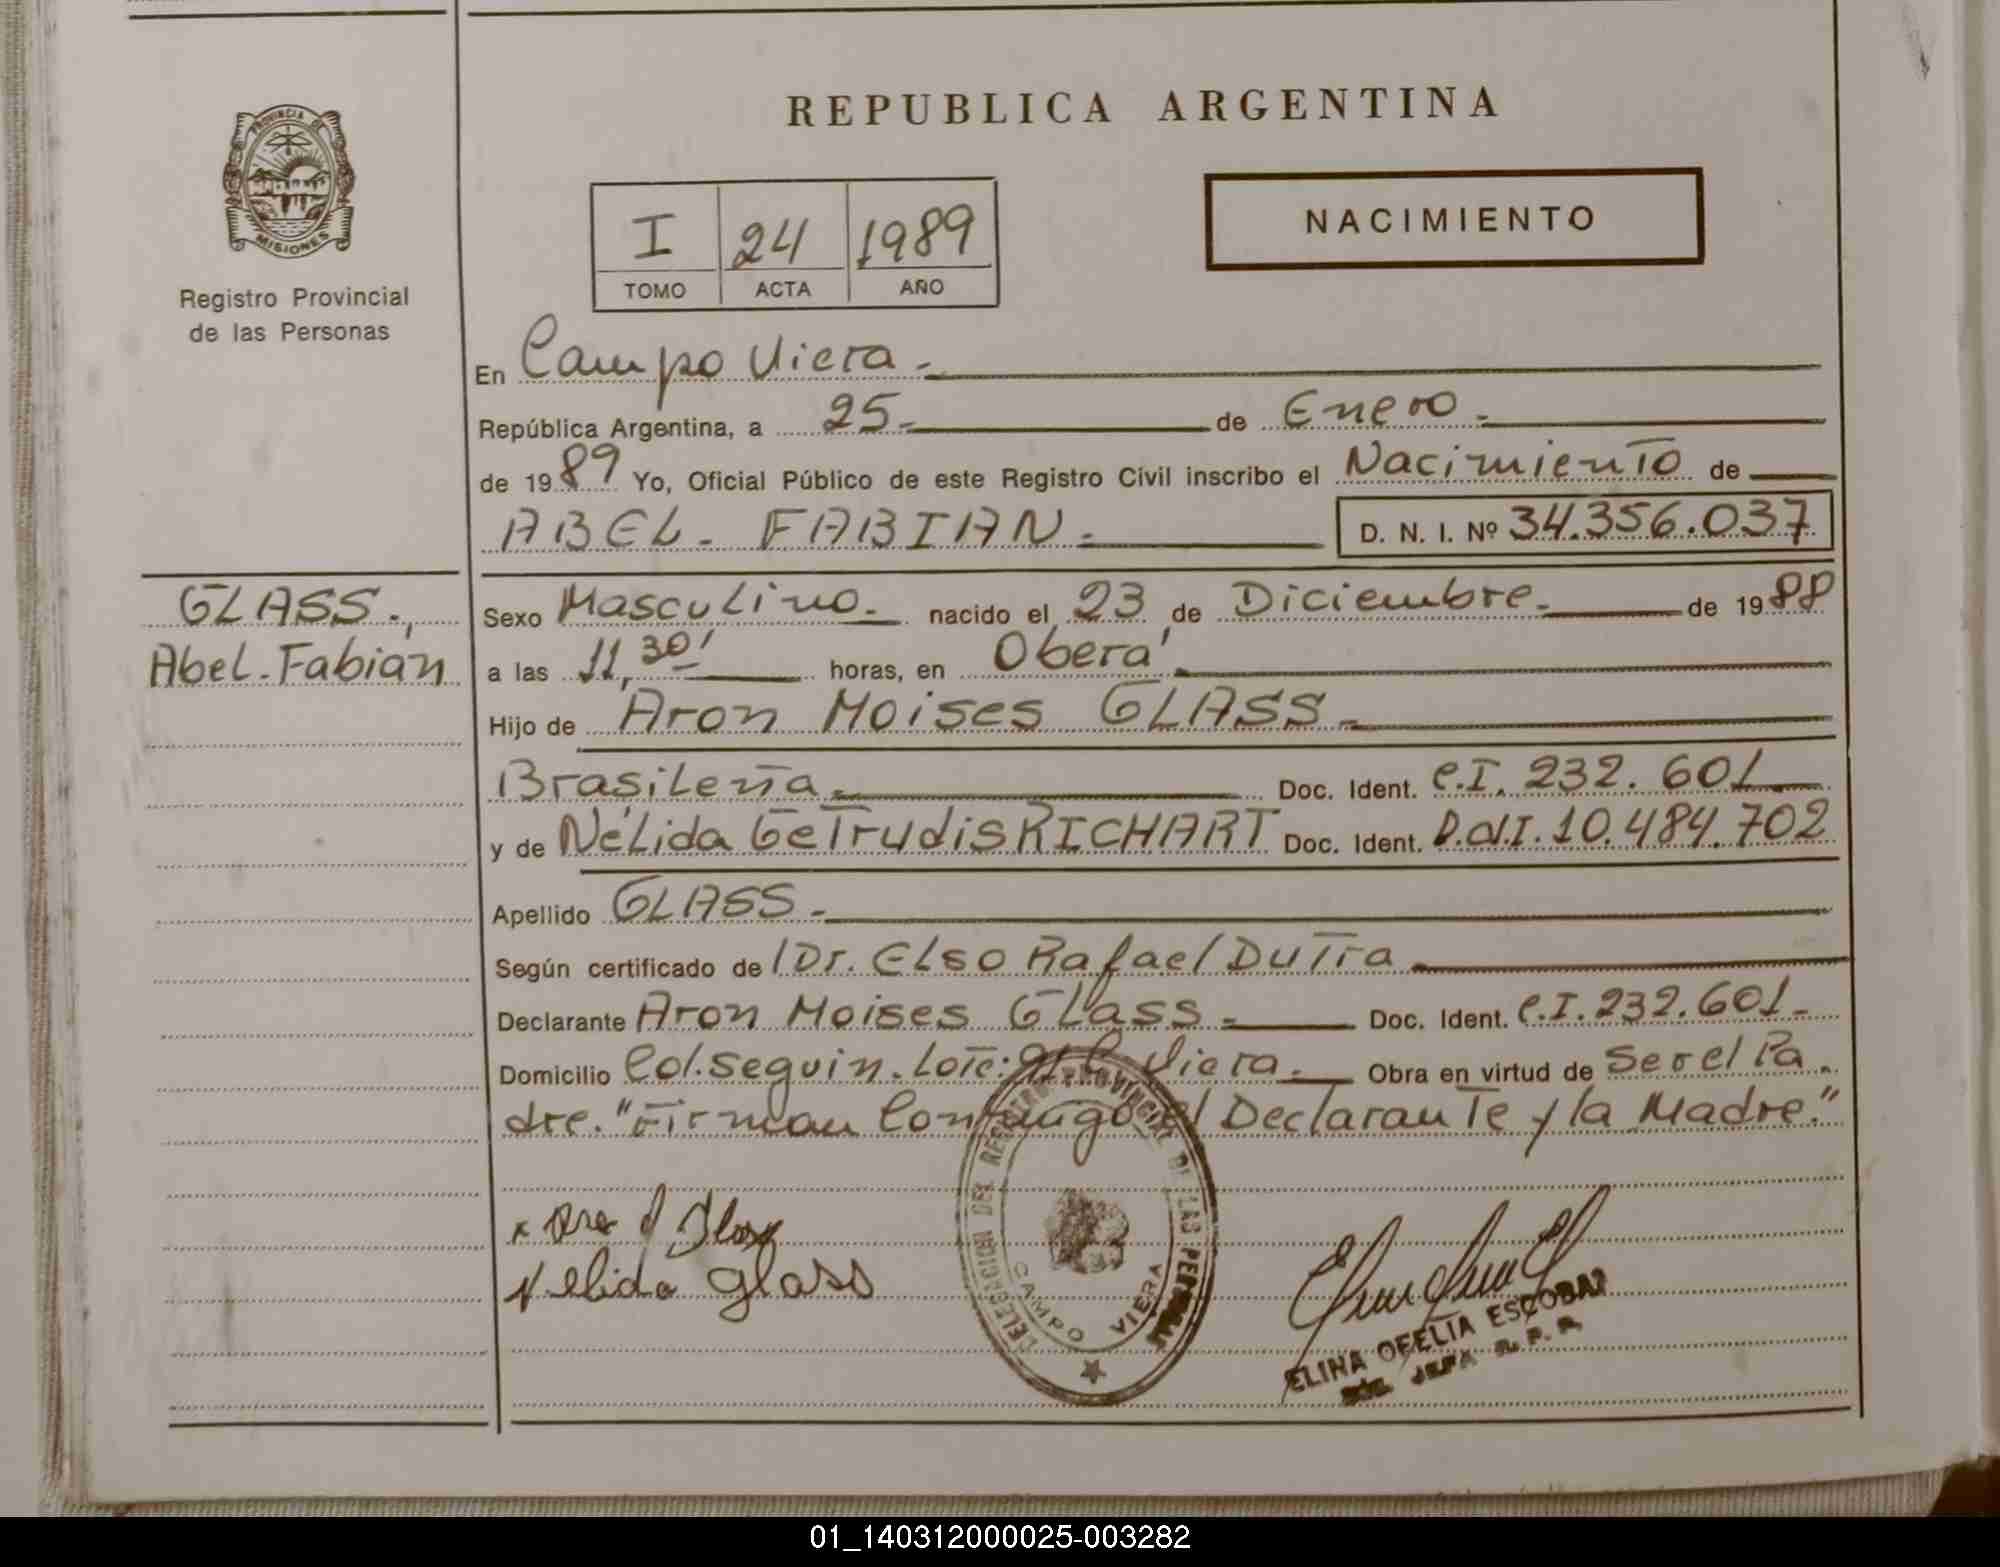 REPUBLICA ARGENTINA
PROVINCIA DE
MISIONES
Registro Provincial
de las Personas
NACIMIENTO
I 24 1989
TOMO ACTA AÑO
En Campo Viera.-
República Argentina, a 25.- de Enero.-
de 1989 Yo, Oficial Público de este Registro Civil inscribo el Nacimiento de
ABEL - FABIAN.- D. N. I. Nº 34.356.037
GLASS.,
Abel-Fabian
Sexo Masculino.- nacido el 23 de Diciembre.- de 1988
a las 11,30' horas, en Oberá.-
Hijo de Aron Moises GLASS.-
Brasileña.- Doc. Ident. C.I. 232.601
y de Nélida GeTrudis RICHART Doc. Ident. D.N.I. 10.484.702
Apellido GLASS.-
Según certificado de Dr. Elso Rafael DuTra
Declarante Aron Moises Glass.- Doc. Ident. C.I. 232.601-
Domicilio Col. Seguin. Lote: Viera.- Obra en virtud de Ser el Pa
dre. "Firman Conmigo el Declarante y la Madre."
Glass
Nelida Glass
DELEGACION DEL REGISTRO PROVINCIAL DE LAS PERSONAS
CAMPO VIERA
ELINA OFELIA ESCOBAR
JEFA R. P. P.
01_140312000025-003282